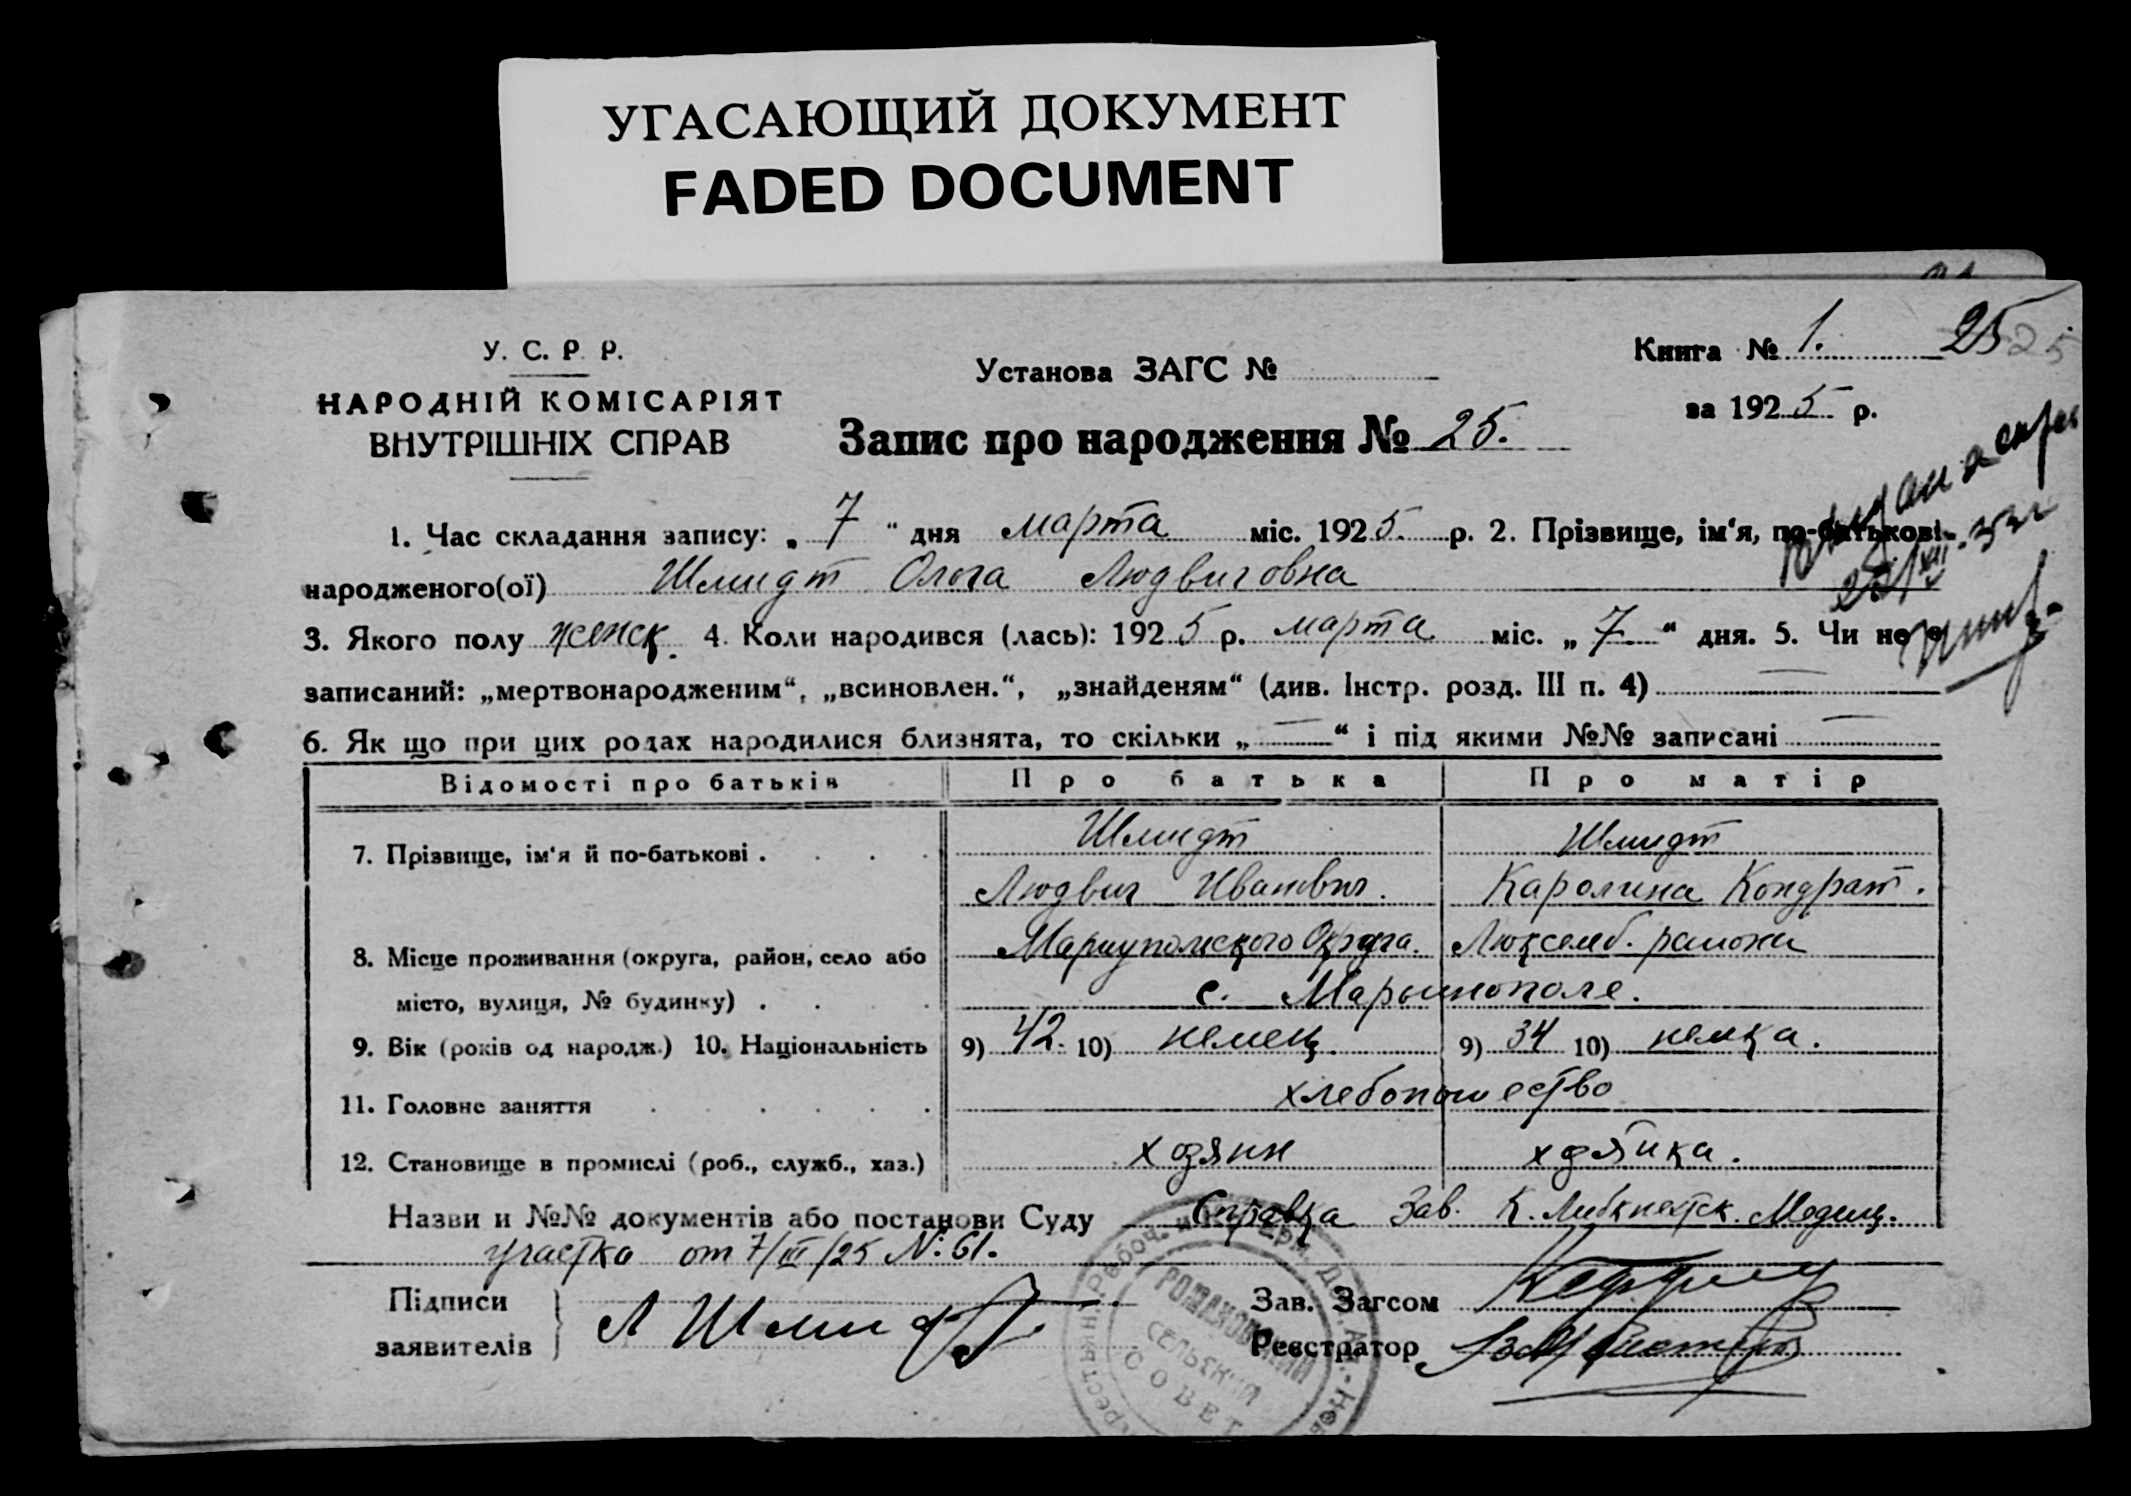 УГАСАЮЩИЙ ДОКУМЕНТ
FADED DOCUMENT
У. С. Р. Р.
НАРОДНІЙ КОМІСАРІЯТ
ВНУТРІШНІХ СПРАВ
Установа ЗАГС №
Книга № 1. 25 25
за 1925 р.
Запис про народження № 25.
1. Час складання запису: „7“ дня марта міс. 1925. р. 2. Прізвище, ім‘я, по-батькові
народженого(ої) Шмидт Ольга Людвиговна
3. Якого полу женск. 4. Коли народився (лась): 1925 р. марта міс. „7“ дня. 5. Чи не є
записаний: „мертвонародженим“, „всиновлен.“, „знайденям“ (див. Інстр. розд. III п. 4) —
6. Як що при цих родах народилися близнята, то скільки „—“ і під якими №№ записані —
Відомості про батьків Про батька Про матір
7. Прізвище, ім‘я й по-батькові . Шмидт Шмидт
Людвиг Иванович. Каролина Кондрат.
8. Місце проживання (округа, район, село або Мариупольского Округа. Люксемб. района
місто, вулиця, № будинку) . с. Марьинополе.
9. Вік (років од народж.) 10. Національність 9) 42. 10) немец. 9) 34 10) немка.
11. Головне заняття хлебопашество
12. Становище в промислі (роб., служб., хаз.) хозяин хозяйка.
Назви и №№ документів або постанови Суду Справка Зав. К. Либкнехтск. Медиц.
участка от 7/III/25 №: 61.
Підписи
заявителів
Л Шмидт
Зав. Загсом
Реєстратор
РОМАНОВСКИЙ
СЕЛЬСКИЙ
СОВЕТ